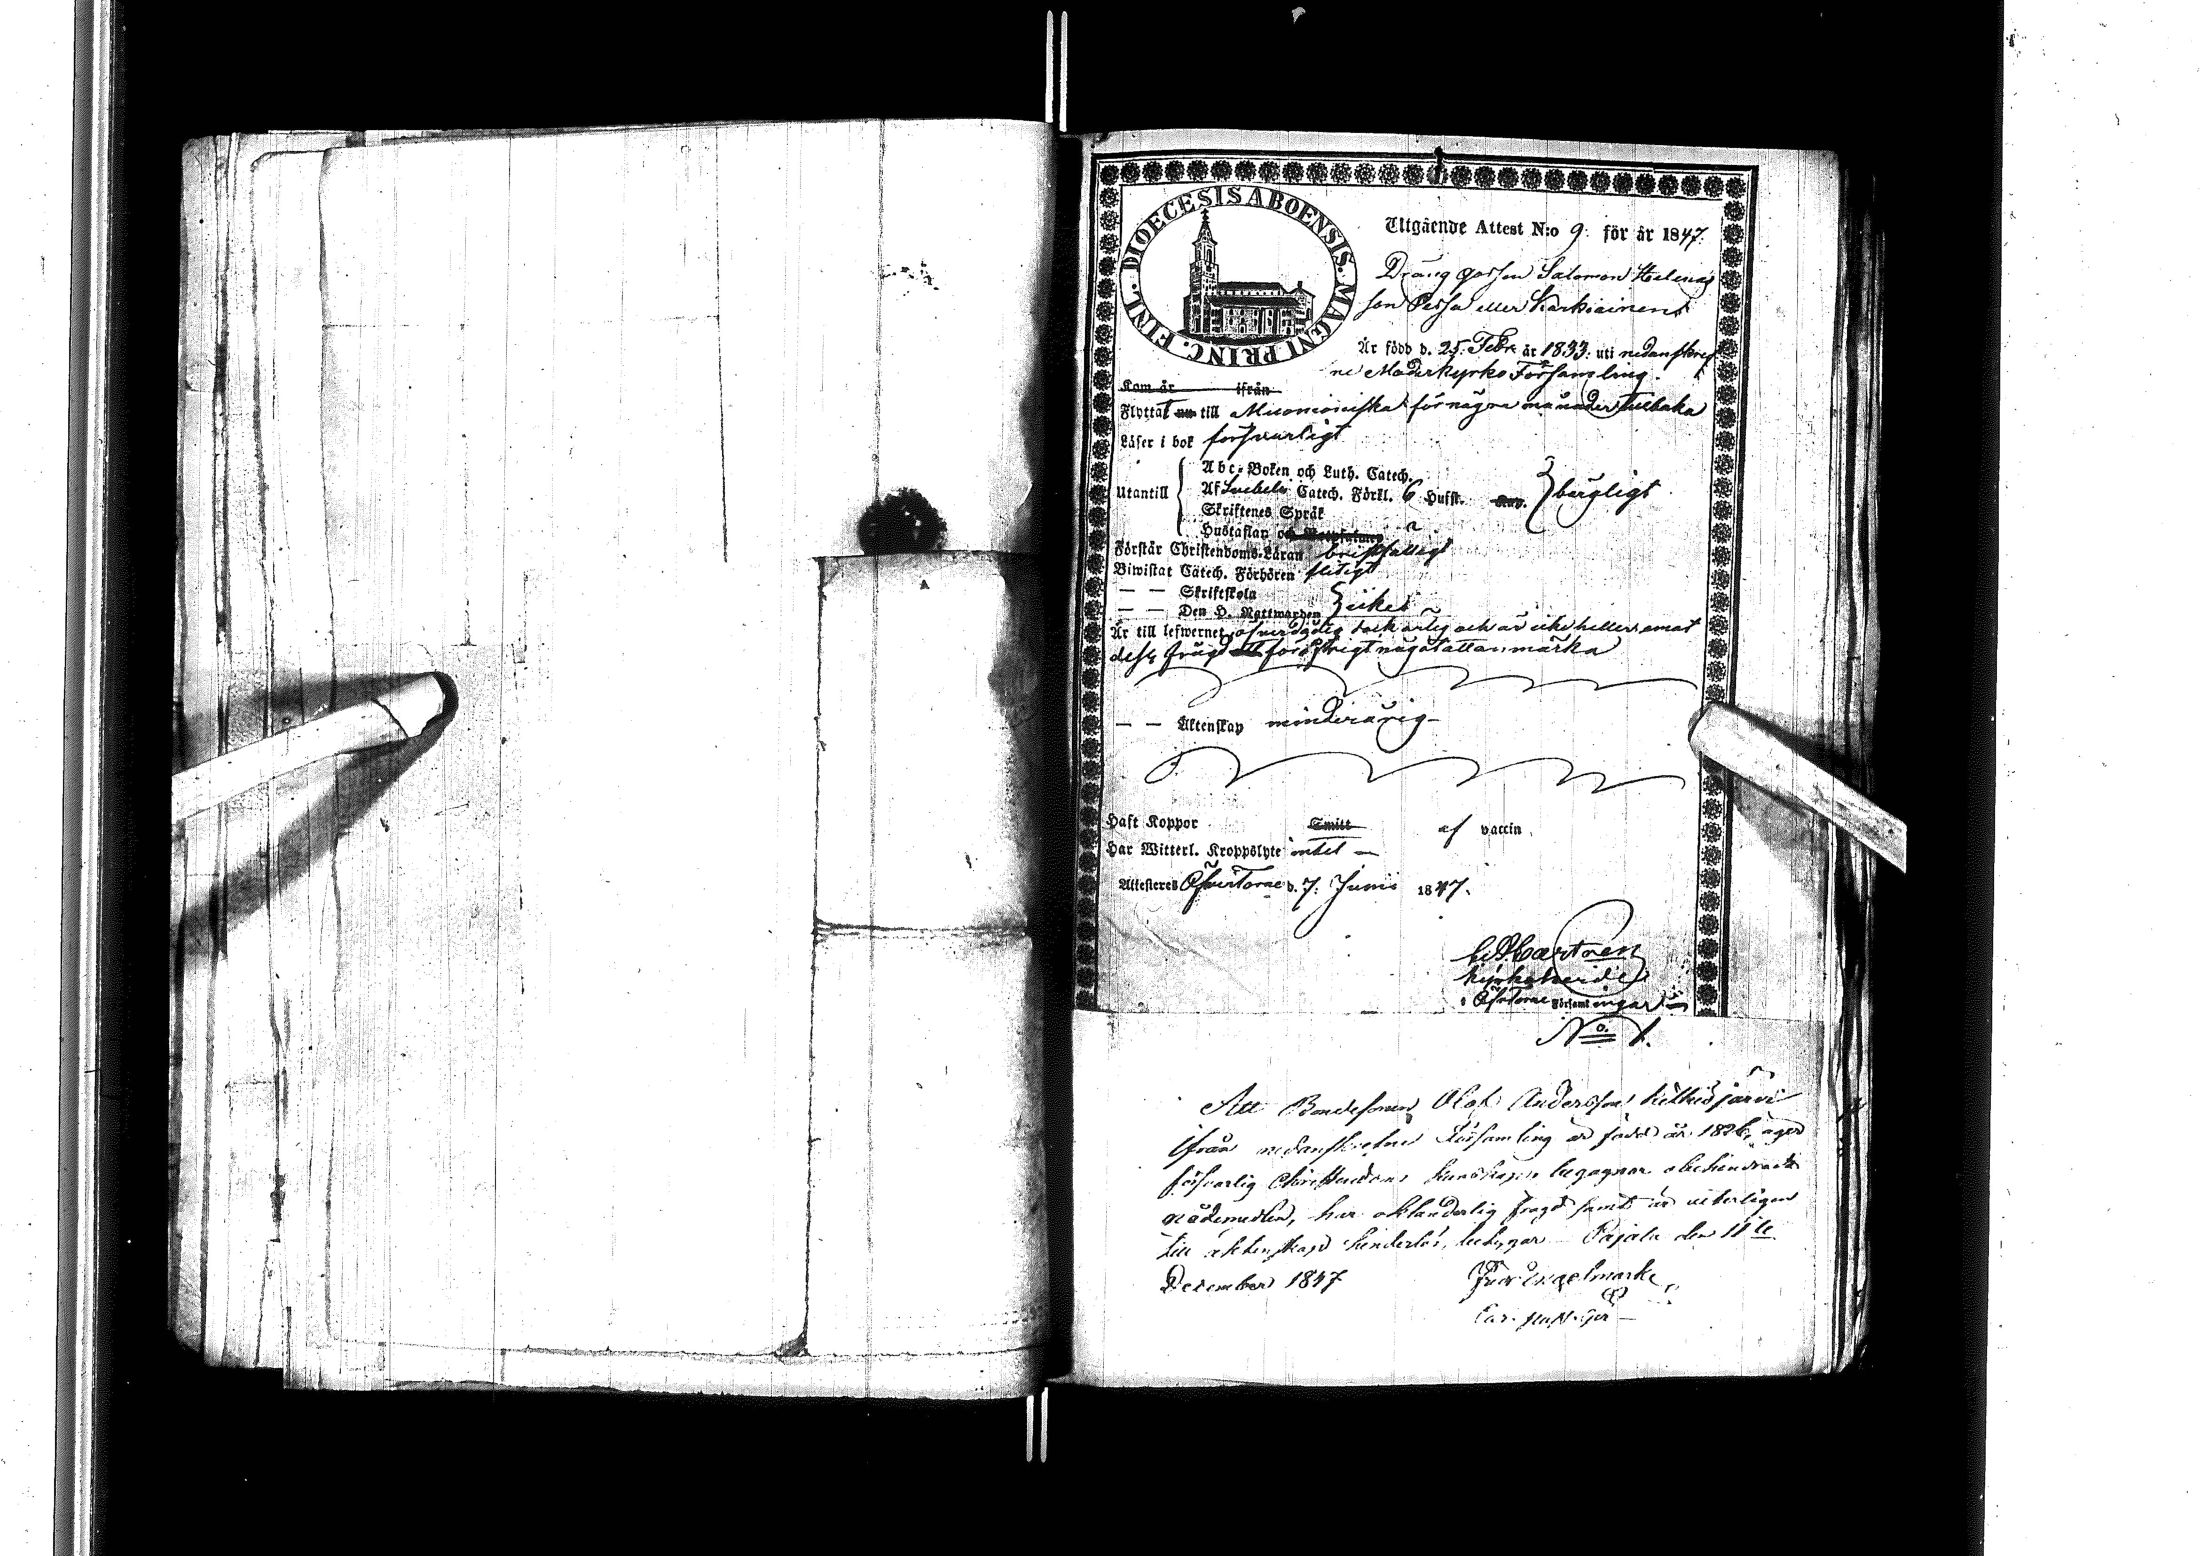 DIOECESIS ABOENSIS. MAGNI PRINC. FINL.
Utgående Attest N:o 9. för år 1847.
Dräng gossen Salomon Helenas
son Pessa eller Karkiainen
Är född d. 25. Febr. år 1833. uti nedanskref
ne Moderkyrko Församling.
Kom år ifrån
Flyttat till Muonioniska för några månader tillbaka
Läser i bok försvarligt
Abc-Boken och Luth. Catech.
Utantill Af Svebeli Catech. Förkl. 6 Hufst. bergligt
Skriftenes Språk
Hustaflan och
Förstår Christendoms-Läran bristfälligt
Biwistat Catech. Förhören flitigt
— — Skriftskola
— — Den H. Nattwarden icke
Är till lefwernet, ärlig och är icke heller emot
dess frägd för öfrigt något att anmärka
— — Äktenskap minderårig
Haft Koppor Smitt af vaccin.
Har Witterl. Kroppslyte intet —
Attesteras ÖfverTorne d. 7. Junii 1847.
Castren
Kyrkoherde
i ÖfverTorne Församlingar
No. 1.
Att Bondesonen Olof Andersson Kitkisjärvi
ifrån nedanskrefne Församling är född år 1826, äger
försvarlig Christendoms kunskap, begagnar obehindradt
nådemedlen, har oklanderlig frägd samt är veterligen
till äktenskap hinderlös, betygar Pajala den 11te
December 1847
Engelmark